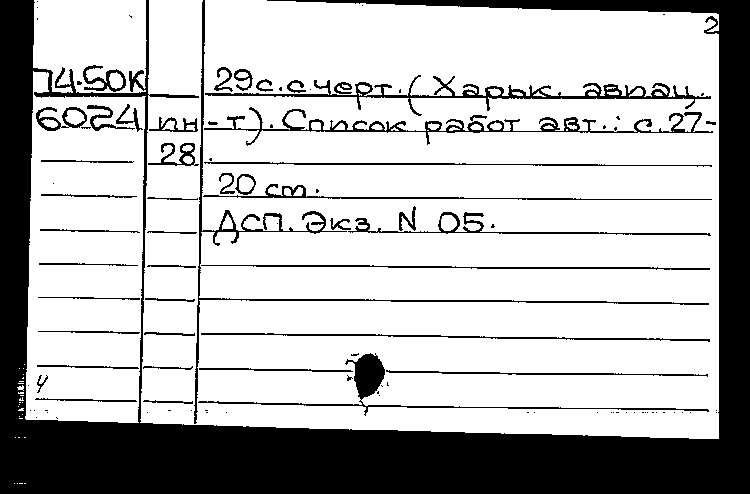 2
74.50К 29 с. с черт. (Харьк. авиац.
6024 ин-т). Список работ авт.: с. 27-
28.
20 см.
ДСП. Экз. N 05.
4